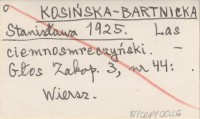 KOSIŃSKA-BARTNICKA
Stanisława 1925. Las
ciemnosmreczyński. -
Głos Zakop. 3, nr 44:
Wiersz.